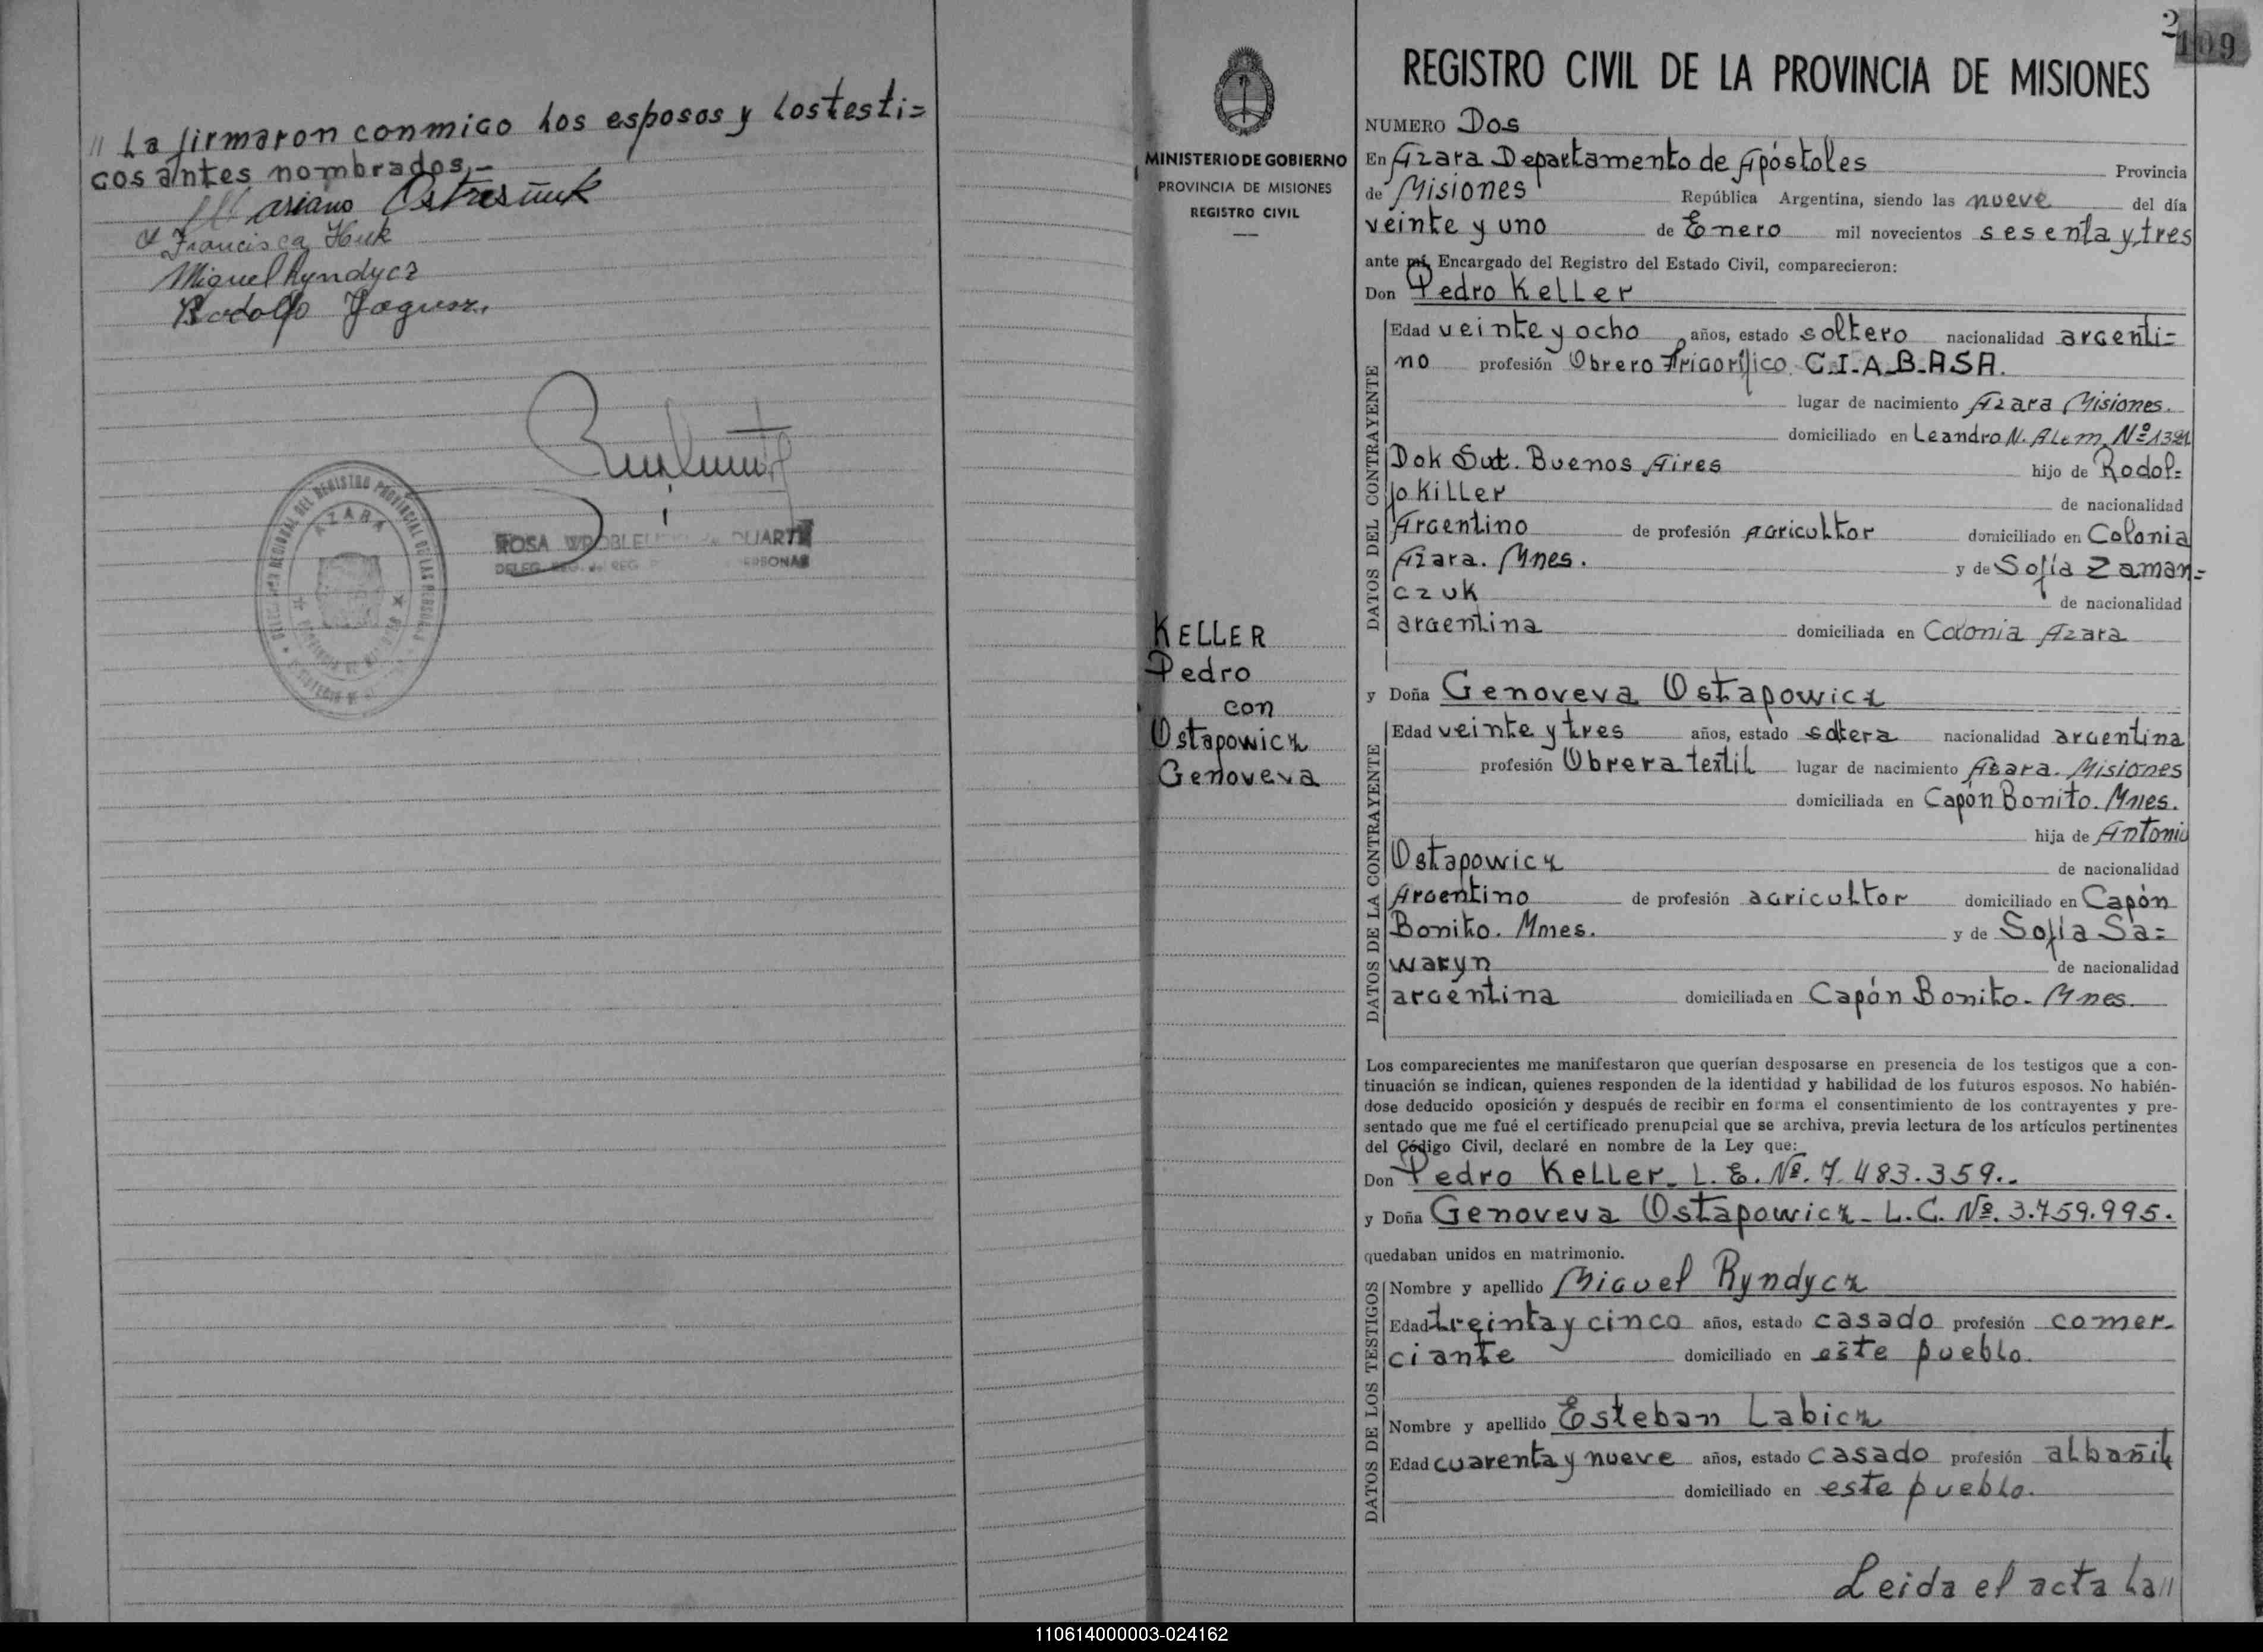 " La firmaron conmigo los esposos y los testi=
gos antes nombrados.-
Mariano
Francisca Huk
Miguel Ryndycz
Rodolfo Jagusz.
AZARA
ROSA DUARTE
DELEG. REG. del REG. PERSONAS
MINISTERIO DE GOBIERNO
PROVINCIA DE MISIONES
REGISTRO CIVIL
KELLER
Pedro
con
Ostapowicz
Genoveva
2
109
REGISTRO CIVIL DE LA PROVINCIA DE MISIONES
NUMERO Dos
En Azara Departamento de Apóstoles Provincia
de Misiones República Argentina, siendo las nueve del día
veinte y uno de Enero mil novecientos sesenta y tres
ante mí, Encargado del Registro del Estado Civil, comparecieron:
Don Pedro Keller
DATOS DEL CONTRAYENTE
Edad veinte y ocho años, estado soltero nacionalidad argenti=
no profesión Obrero Frigorífico C.I.A.B.A.S.A.
lugar de nacimiento Azara Misiones.
domiciliado en Leandro N. Alem Nº 1321
Dok Sut. Buenos Aires hijo de Rodol=
fo Killer de nacionalidad
Argentino de profesión agricultor domiciliado en Colonia
Azara. Mnes. y de Sofía Zaman=
czuk de nacionalidad
argentina domiciliada en Colonia Azara
y Doña Genoveva Ostapowicz
DATOS DE LA CONTRAYENTE
Edad veinte y tres años, estado soltera nacionalidad argentina
profesión Obrera textil lugar de nacimiento Azara. Misiones
domiciliada en Capón Bonito. Mnes.
hija de Antonio
Ostapowicz de nacionalidad
Argentino de profesión agricultor domiciliado en Capón
Bonito. Mnes. y de Sofía Sa=
waryn de nacionalidad
argentina domiciliada en Capón Bonito. Mnes.
Los comparecientes me manifestaron que querían desposarse en presencia de los testigos que a con-
tinuación se indican, quienes responden de la identidad y habilidad de los futuros esposos. No habién-
dose deducido oposición y después de recibir en forma el consentimiento de los contrayentes y pre-
sentado que me fué el certificado prenupcial que se archiva, previa lectura de los artículos pertinentes
del Código Civil, declaré en nombre de la Ley que:
Don Pedro Keller. L. E. Nº. 7.483.359..
y Doña Genoveva Ostapowicz. L.C. Nº. 3.759.995.
quedaban unidos en matrimonio.
DATOS DE LOS TESTIGOS
Nombre y apellido Miguel Ryndycz
Edad treinta y cinco años, estado casado profesión comer-
ciante domiciliado en este pueblo.
Nombre y apellido Esteban Labicz
Edad cuarenta y nueve años, estado casado profesión albañil
domiciliado en este pueblo.
Leida el acta la"
110614000003-024162